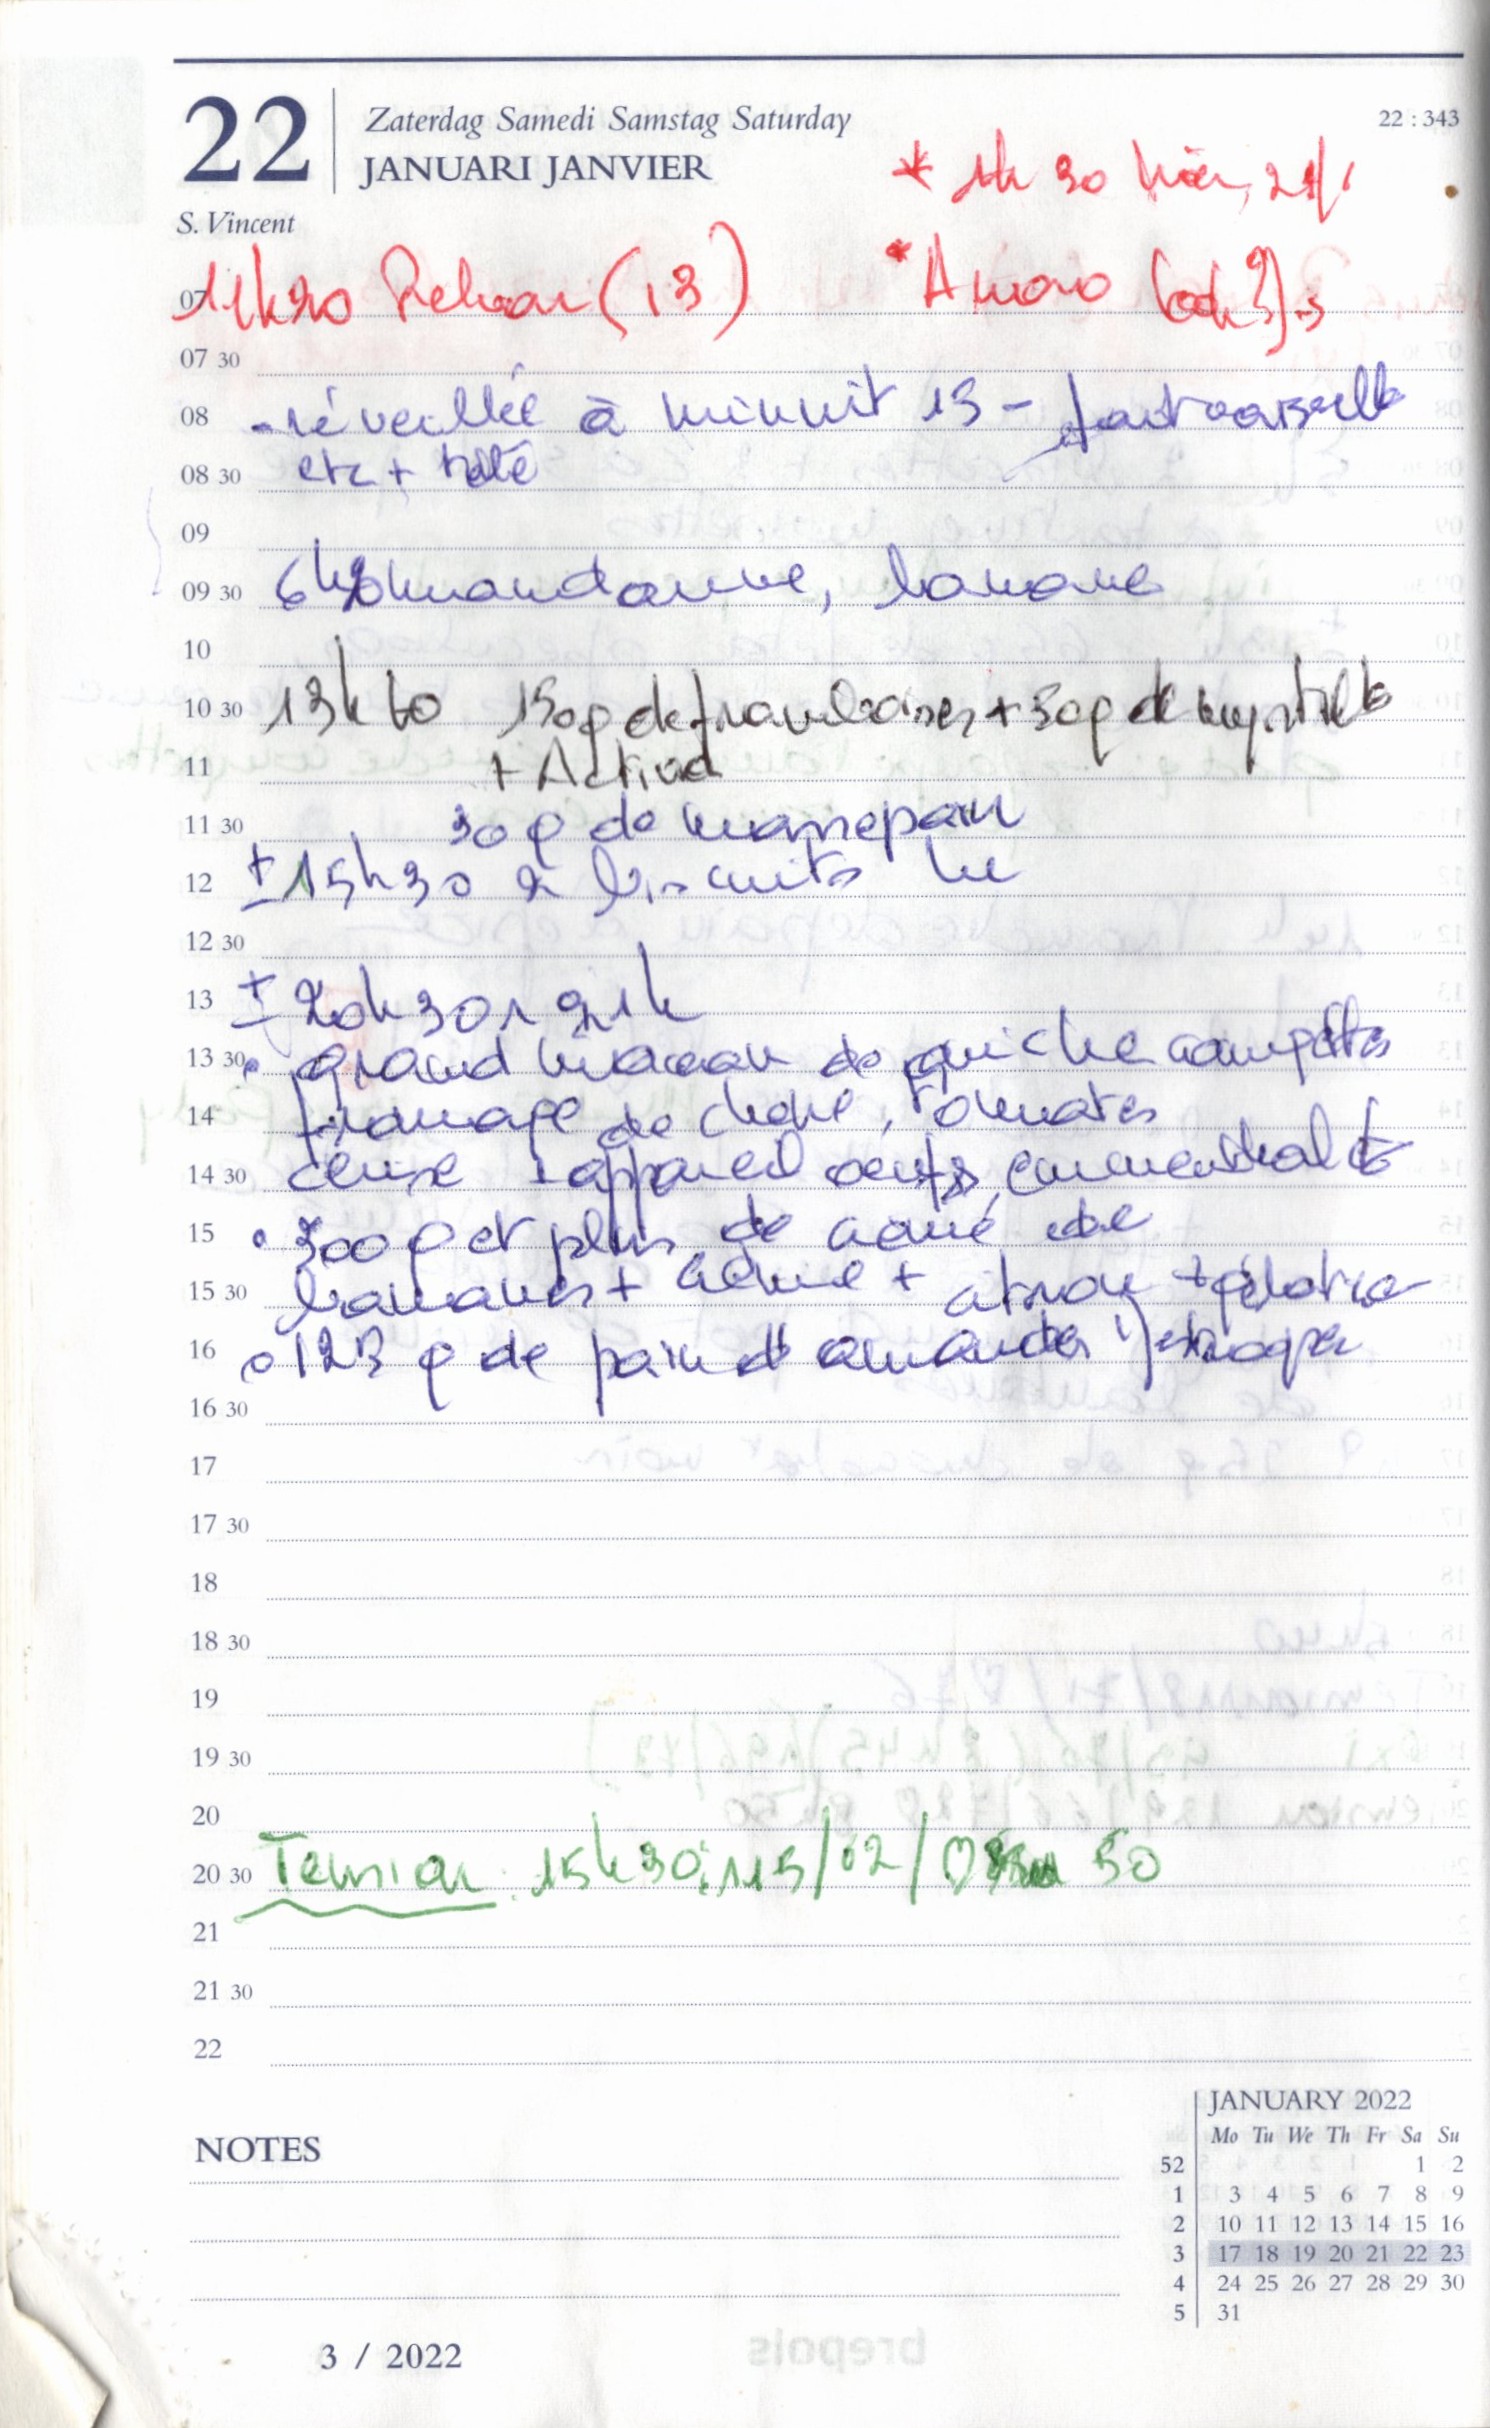 22
Zaterdag Samedi Samstag Saturday
JANUARI JANVIER
22 : 343
* 1h 30 hier, 21/1
S. Vincent
07 11h20 (13) *
07 30
08 - réveillée à minuit 15 - fait vaisselle
08 30 etc +
09
09 30 mandarine, banane
10
10 30 13h 150g de framboises + 50g de myrtilles
11 + Activia
11 30 30 g de massepain
12 ± 15h30 2 biscuits lu
12 30
13 ± 20h30 à 21h
13 30 • grand morceau de quiche courgettes
14 fromage de chèvre, tomates
14 30 cerise + appareil oeufs, emmenthal
15 • 300 g et plus de de
15 30 bananes + crème + citron + gélatine
16 • 123 g de pain d'amandes
16 30
17
17 30
18
18 30
19
19 30
20
20 30 Tension : 15h30: 115/62/ 50
21
21 30
22
NOTES
JANUARY 2022
Mo Tu We Th Fr Sa Su
52 1 2
1 3 4 5 6 7 8 9
2 10 11 12 13 14 15 16
3 17 18 19 20 21 22 23
4 24 25 26 27 28 29 30
5 31
3 / 2022